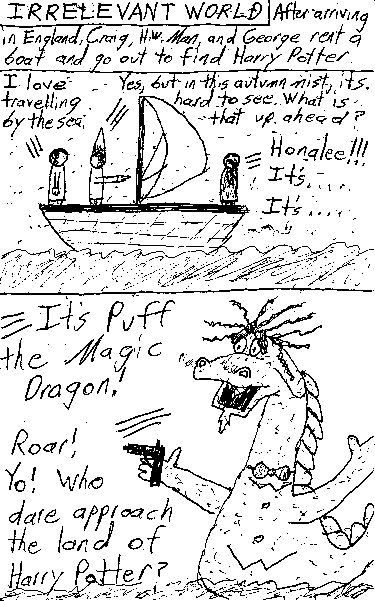 IRRELEVANT WORLD After arriving
in England, Craig, H.W. Man, and George rent a
boat and go out to find Harry Potter
I love
travelling
by the sea.
Yes, but in this autumn mist, its
hard to see. What is
that up ahead?
Honalee!!!
It's....
It's.....
It's Puff
the Magic
Dragon!
Roar!
Yo! Who
dare approach
the land of
Harry Potter?